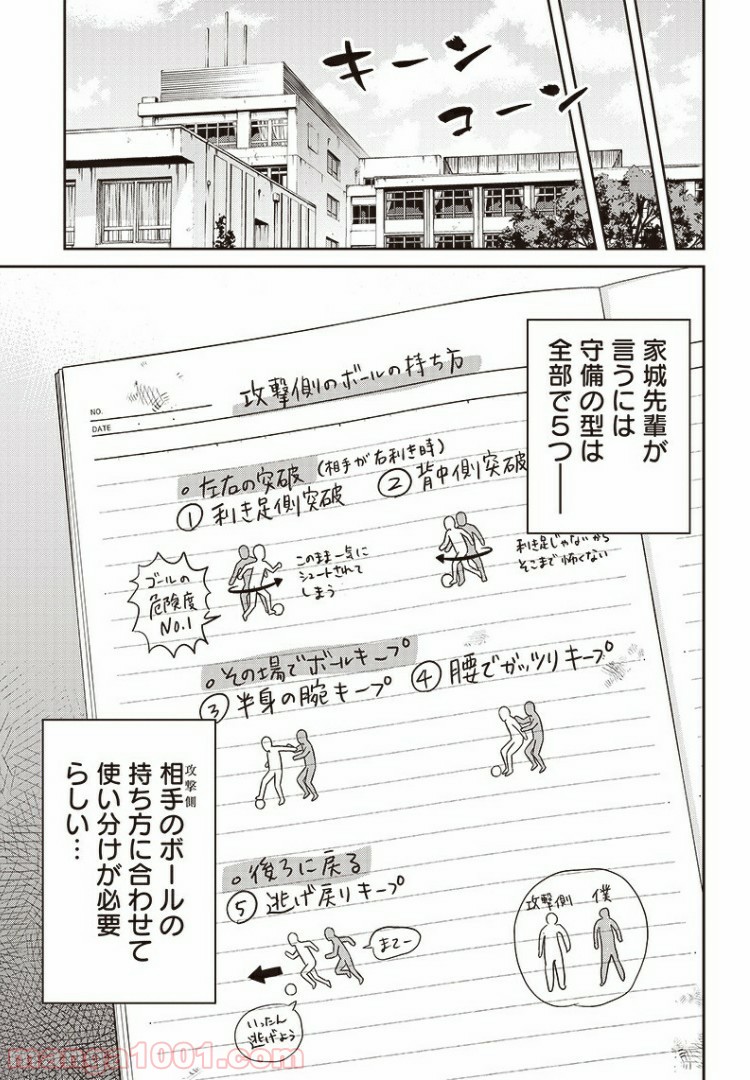 キーン
コーン
家城先輩が
言うには
守備の型は
全部で5つ――
NO.
DATE
攻撃側のボールの持ち方
左右の突破(相手が右利き時)
① 利き足側突破
② 背中側突破
ゴールの
危険度
No.1
このまま一気に
シュートされて
しまう
利き足じゃないから
そこまで怖くない
その場でボールキープ
③ 半身の腕キープ
④ 腰でガッツリキープ
攻撃側
相手のボールの
持ち方に合わせて
使い分けが必要
らしい…
後ろに戻る
⑤ 逃げ戻りキープ
まてー
いったん
逃げよう
攻撃側
僕
manga1001.com